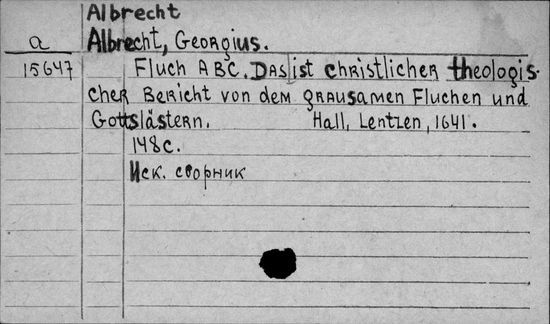 Albrecht
a
Albrecht, Georgius.
15647
Fluch ABC. Das ist christlicher theologis-
cher Bericht von dem grausamen Fluchen und
Gottslästern. Hall, Lentzen, 1641.
148 с.
Иск. сборник